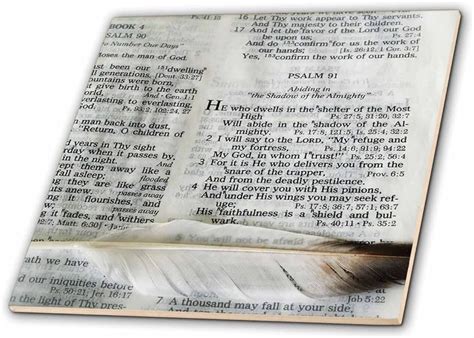 BOOK 4
PSALM 90
to Number Our Days
Moses the man of God.
ast been our dwelling
ll generations. [Deut. 33:27]
ountains were born,
st give birth to the earth
erlasting to everlasting,
Ps. 93:2, 102:24, 25
man back into dust,
Return, O children of
ears in Thy sight
rday when it passes by,
in the night.
fall asleep;
they are like grass
s anew.
flourishes, and
and withers away.
ath we have
d our iniquities before
Ps. 50:21; Jer. 16:17
in the light of Thy
16 Let Thy work appear to Thy servants,
And Thy majesty to their children.
17 And let the favor of the Lord our God
be upon us;
And do confirm for us the work of
our hands;
Yes, confirm the work of our hands.
PSALM 91
Abiding in
"the Shadow of the Almighty"
HE who dwells in the shelter of the Most
High Ps. 27:5, 31:20, 32:7
Will abide in the shadow of the Al-
mighty. Ps. 17:8, 121:5, Is. 25:4; 32:2
2 I will say to the LORD, "My refuge and
my fortress, Ps. 14:6, 91:9; 94:22
My God, in whom I trust!" Ps. 25:2; 56:4
3 For it is He who delivers you from the
snare of the trapper, Prov. 6:5
And from the deadly pestilence.
4 He will cover you with His pinions,
And under His wings you may seek ref-
uge; Ps. 17:8; 36:7; 57:1; 63:7
His faithfulness is a shield and bul-
wark. Ps. 40:11 Ps. 35:2
7 A thousand may fall at your side,
Job 5:22